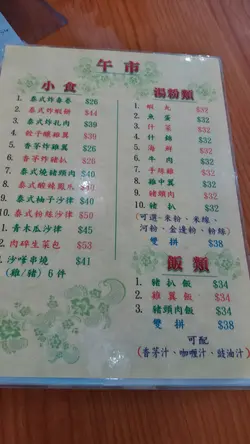 午市
小食
1. 泰式炸春卷 $26
2. 泰式炸蝦餅 $44
3. 泰式炸孔肉 $39
4. 餃子釀雞翼 $39
5. 香茅炸雞翼 $26
6. 香茅炸豬扒
7. 泰式燒豬頸肉 $40
8. 泰式酸辣鳳爪
9. 泰式柚子沙律 $40
10. 泰式粉絲沙律 $50
1. 青木瓜沙律 $45
2. 肉碎生菜包 $53
3. 沙嗲串燒 $41
(雞/豬) 6 件
湯粉類
1. 蝦丸 $32
2. 魚蛋 $32
3. 汁菜 $32
4. 什錦 $32
5. 海鮮 $32
6. 牛肉 $32
7. 手絲雞 $32
8. 雞中翼 $32
9. 豬頸肉 $32
10. 豬扒 $32
(可選-米粉、米線、
河粉、金邊粉、粉絲)
雙拼 $38
飯類
1 豬扒飯 $34
2. 雞翼飯 $34
3. 豬頸肉飯 $34
雙拼 $38
可配
(香茅汁、咖喱汁、豉油汁)